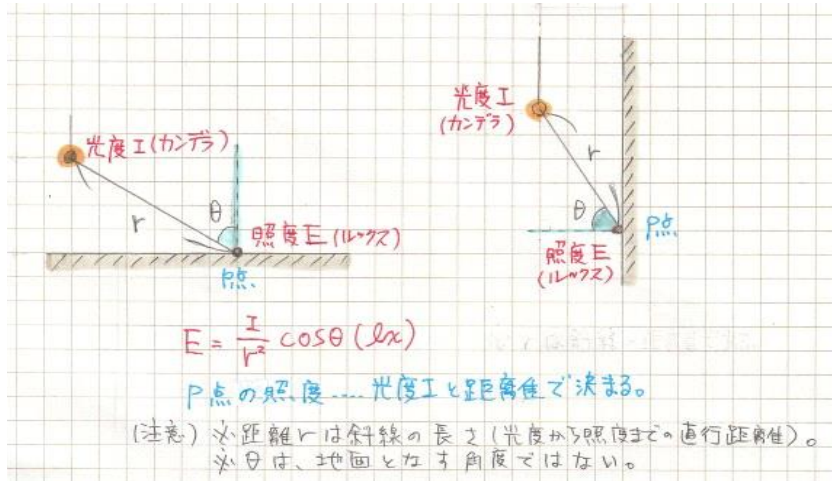 光度I(カンデラ)
r
θ
照度E(ルックス)
P点
光度I
(カンデラ)
r
θ
P点
照度E
(ルックス)
E = I/r² cosθ (lx)
P点の照度....光度Iと距離で決まる。
(注意) ※距離rは斜線の長さ(光度から照度までの直行距離)。
※θは、地面となす角度ではない。